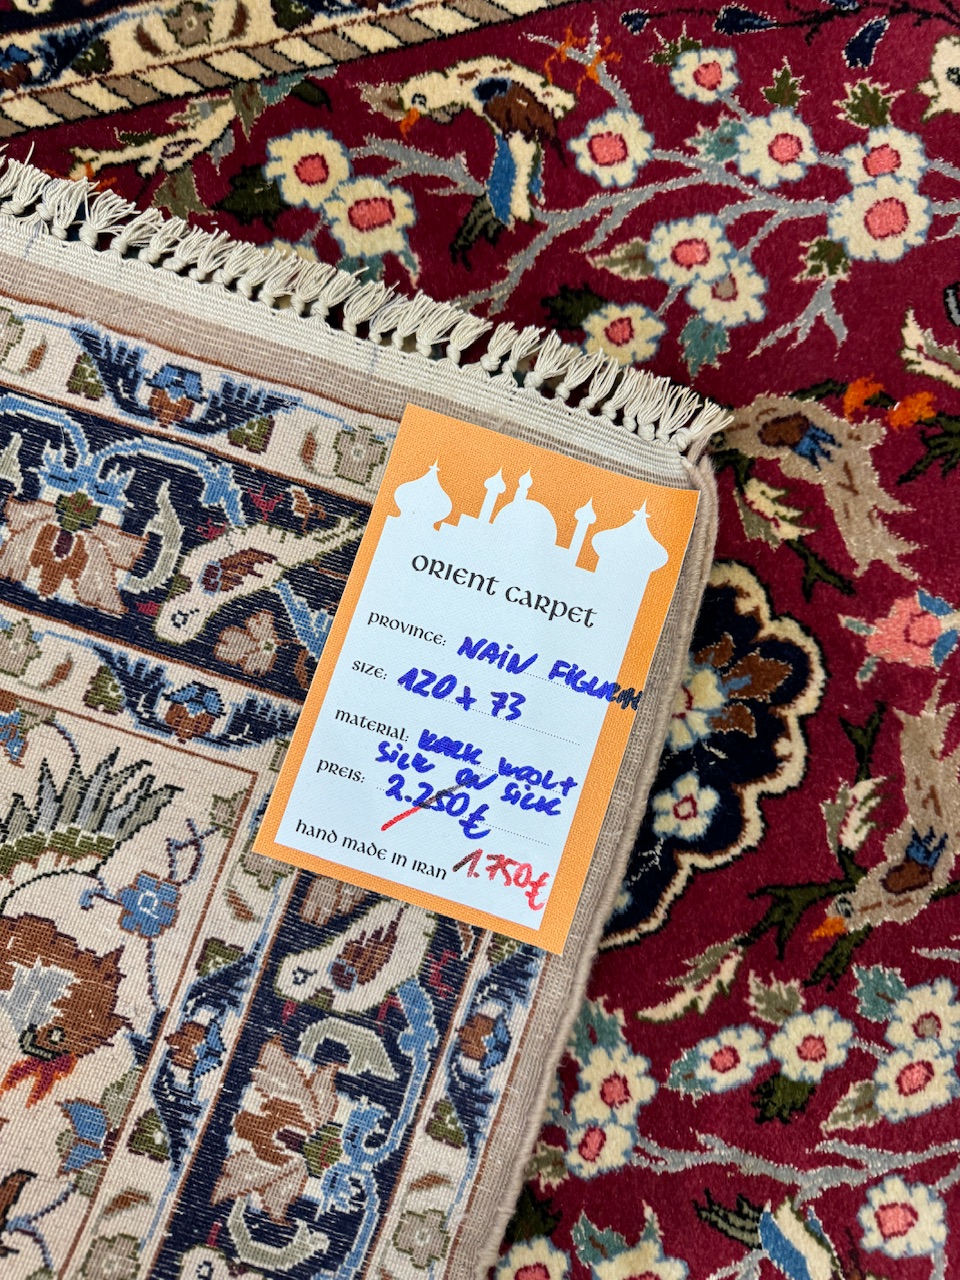 ORIENT CARPET
PROVINCE: NAIN FIGURAL
SIZE: 120 x 73
MATERIAL: WOOL +
SILK ON SILK
PREIS: 2.250€
HAND MADE IN IRAN 1.750€